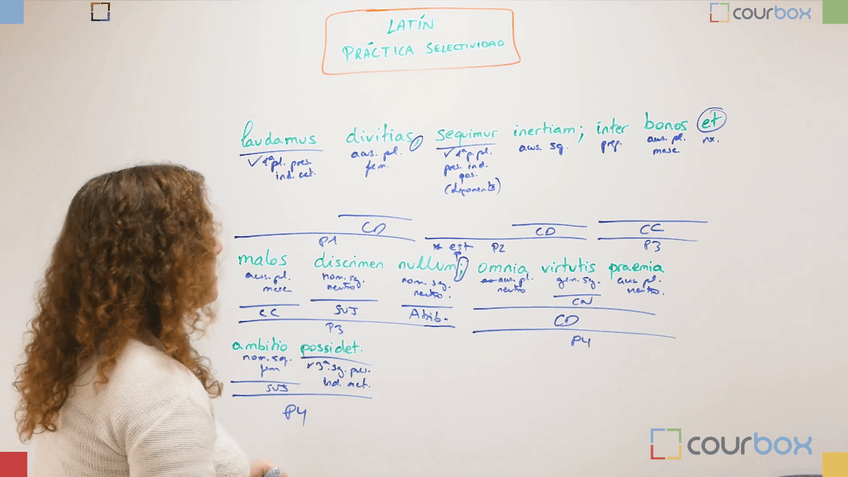 courbox
LATÍN
PRÁCTICA SELECTIVIDAD
laudamus divitias, sequimur inertiam; inter bonos et
v 1ª pl. pres. acus. pl. v 1ª p. pl. acus. sg. prep. acus. pl. nx.
ind. act. fem. pres. ind. masc
pas.
(deponente)
CD CD CC
P1 * est P2 P3
malos discrimen nullum; omnia virtutis praemia
acus. pl. nom. sg. nom. sg. acus. pl. gen. sg. acus. pl.
masc neutro neutro. neutro neutro.
CC SUJ Atrib. CN
P3 CD
P4
ambitio possidet.
nom. sg. v 3ª sg. pres.
fem ind. act.
SUJ
P4
courbox